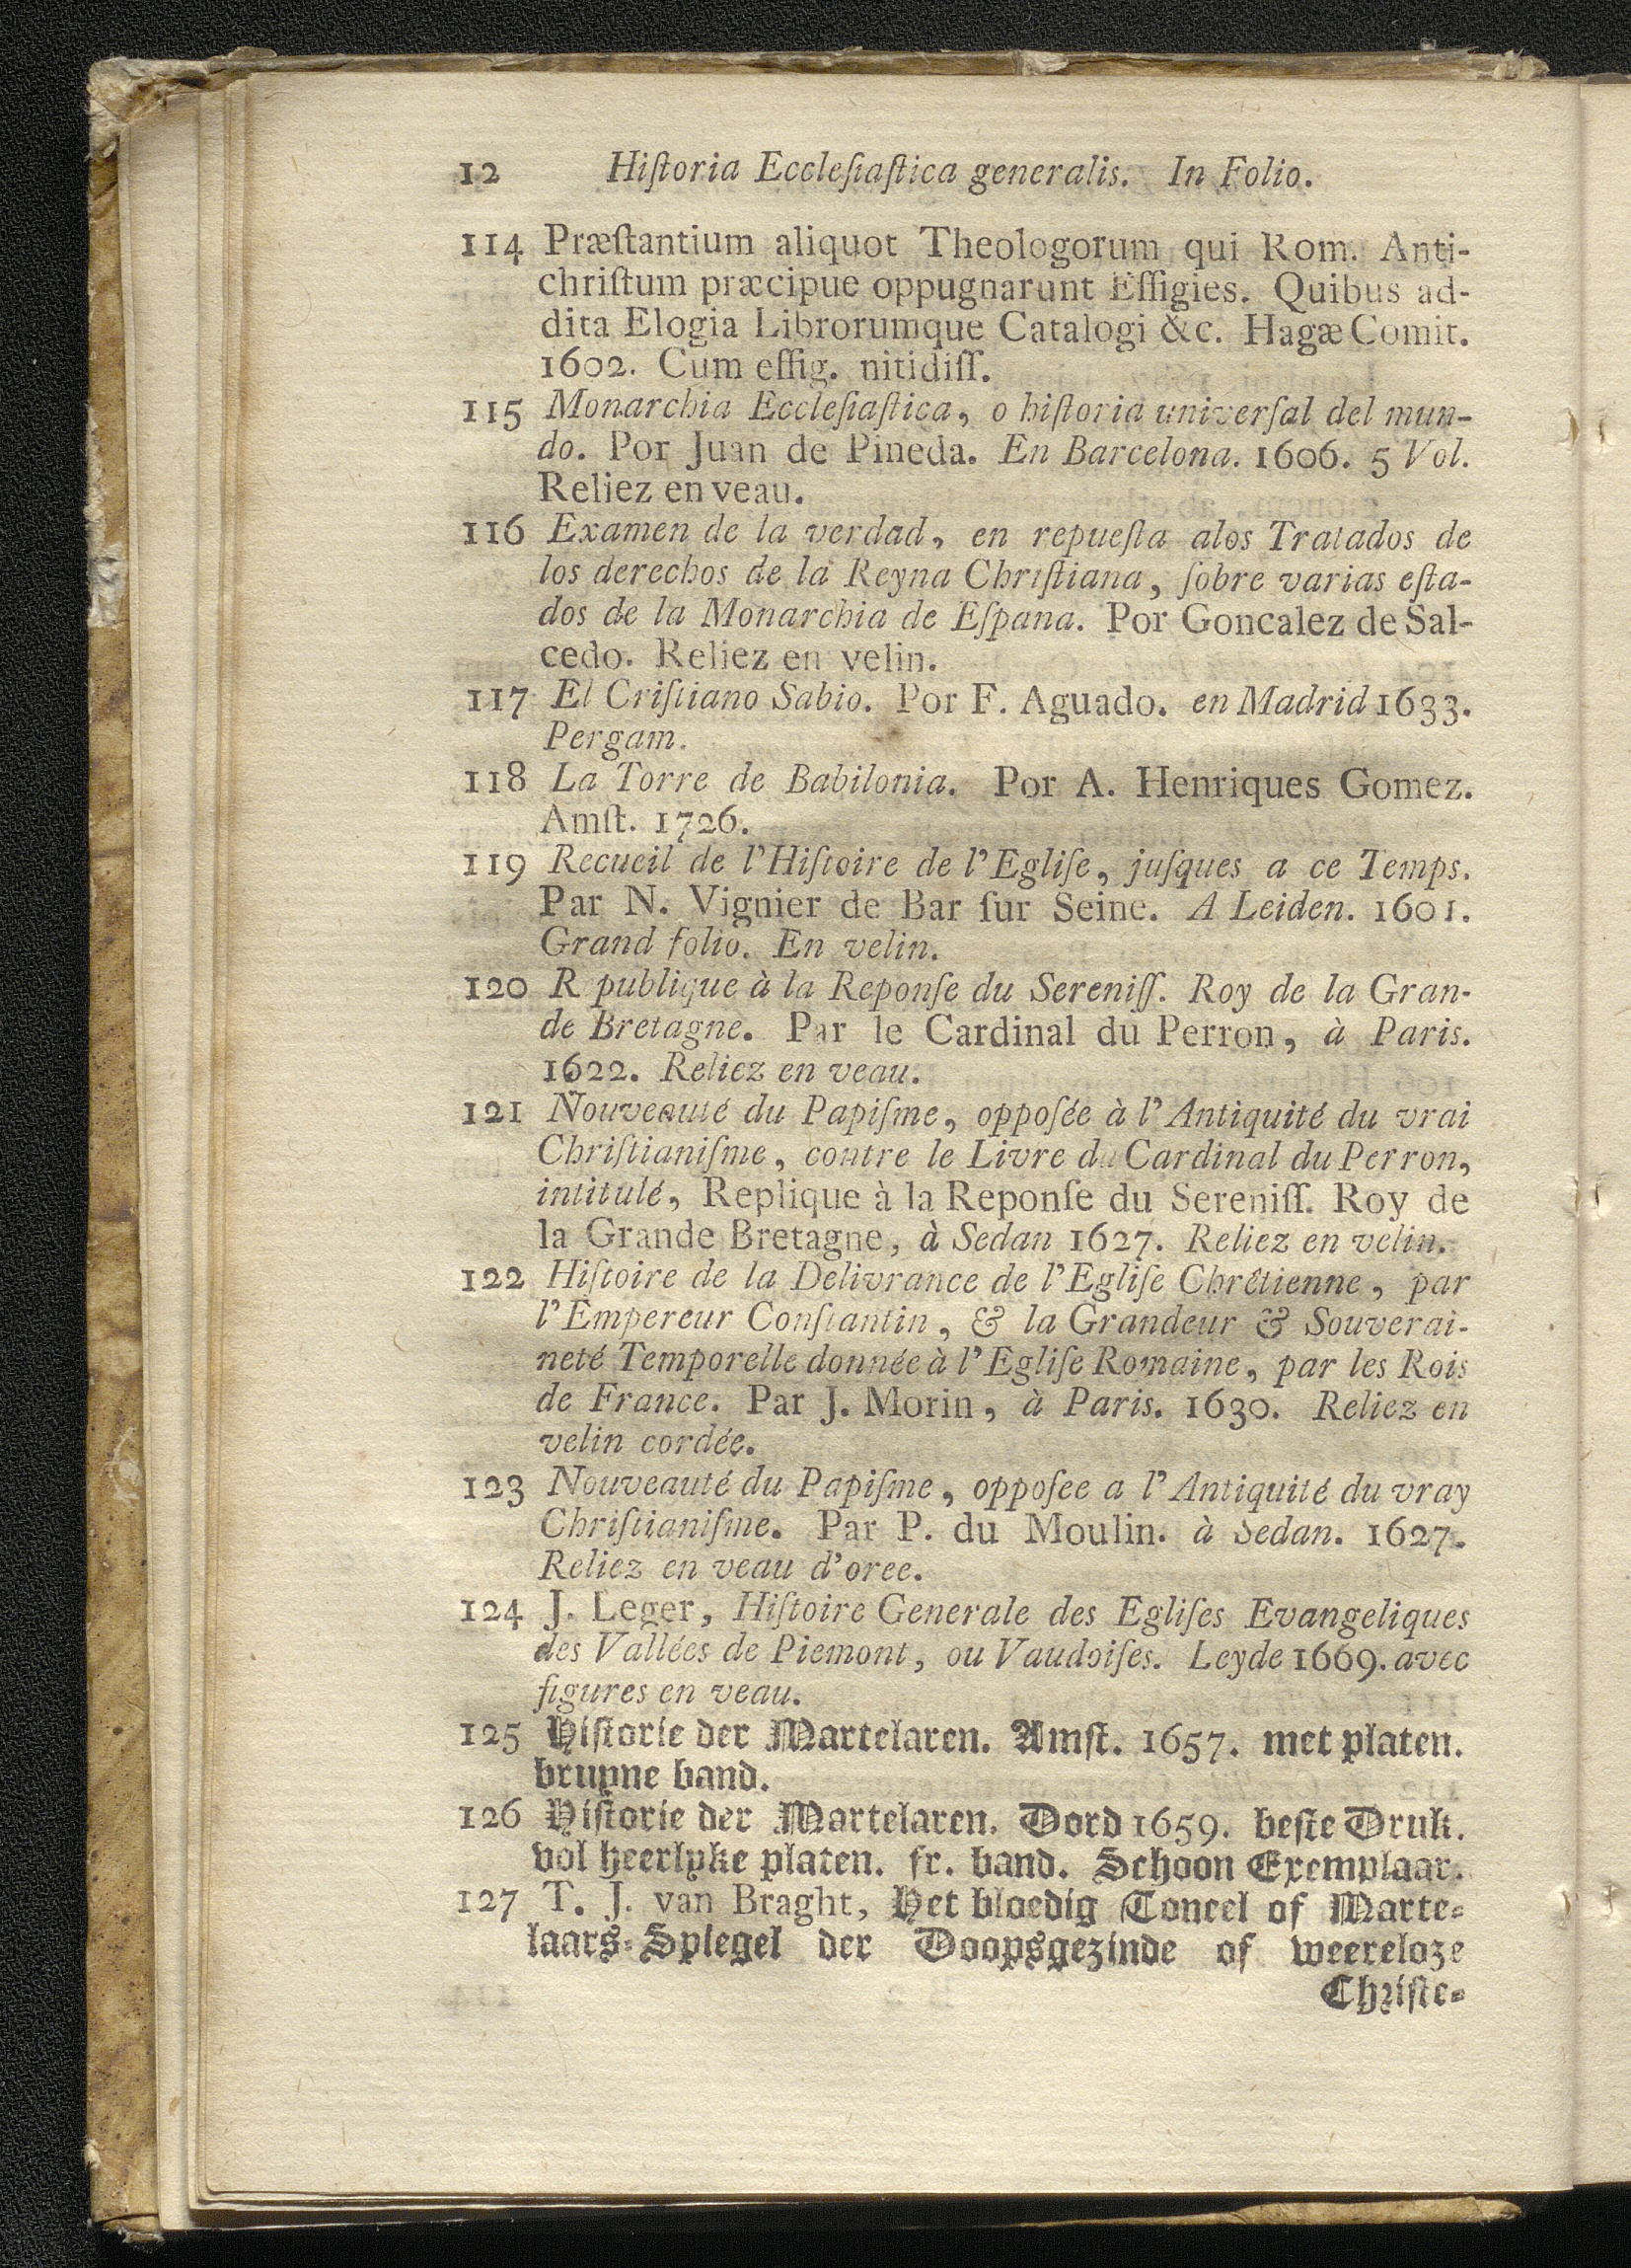 12 Hiſtoria Eccleſiaſtica generalis. In Folio.
114 Præſtantium aliquot Theologorum qui Rom. Anti-
chriſtum præcipue oppugnarunt Effigies. Quibus ad-
dita Elogia Librorumque Catalogi &c. Hagæ Comit.
1602. Cum effig. nitidiſſ.
115 Monarchia Eccleſiaſtica, o hiſtoria univerſal del mun-
do. Por Juan de Pineda. En Barcelona. 1606. 5 Vol.
Reliez en veau.
116 Examen de la verdad, en repueſta alos Tratados de
los derechos de la Reyna Chriſtiana, ſobre varias eſta-
dos de la Monarchia de Eſpana. Por Goncalez de Sal-
cedo. Reliez en velin.
117 El Criſtiano Sabio. Por F. Aguado. en Madrid 1633.
Pergam.
118 La Torre de Babilonia. Por A. Henriques Gomez.
Amſt. 1726.
119 Recueil de l'Hiſtoire de l'Egliſe, juſques a ce Temps.
Par N. Vignier de Bar ſur Seine. A Leiden. 1601.
Grand folio. En velin.
120 R publique à la Reponſe du Sereniſſ. Roy de la Gran-
de Bretagne. Par le Cardinal du Perron, à Paris.
1622. Reliez en veau.
121 Nouveauté du Papiſme, oppoſée à l'Antiquité du vrai
Chriſtianiſme, contre le Livre du Cardinal du Perron,
intitulé, Replique à la Reponſe du Sereniſſ. Roy de
la Grande Bretagne, à Sedan 1627. Reliez en velin.
122 Hiſtoire de la Delivrance de l'Egliſe Chrêtienne, par
l'Empereur Conſtantin, & la Grandeur & Souverai-
neté Temporelle donnée à l'Egliſe Romaine, par les Rois
de France. Par J. Morin, à Paris. 1630. Reliez en
velin cordée.
123 Nouveauté du Papiſme, oppoſee a l'Antiquité du vray
Chriſtianiſme. Par P. du Moulin. à Sedan. 1627.
Reliez en veau d'oree.
124 J. Leger, Hiſtoire Generale des Egliſes Evangeliques
des Vallées de Piemont, ou Vaudoiſes. Leyde 1669. avec
figures en veau.
125 Hiſtorie der Martelaren. Amſt. 1657. met platen.
bruyne band.
126 Hiſtorie der Martelaren. Dord 1659. beſte Druk.
vol heerlyke platen. fr. band. Schoon Exemplaar.
127 T. J. van Braght, Het bloedig Toneel of Marte-
laars-Spiegel der Doopsgezinde of weereloze
Chriſte-